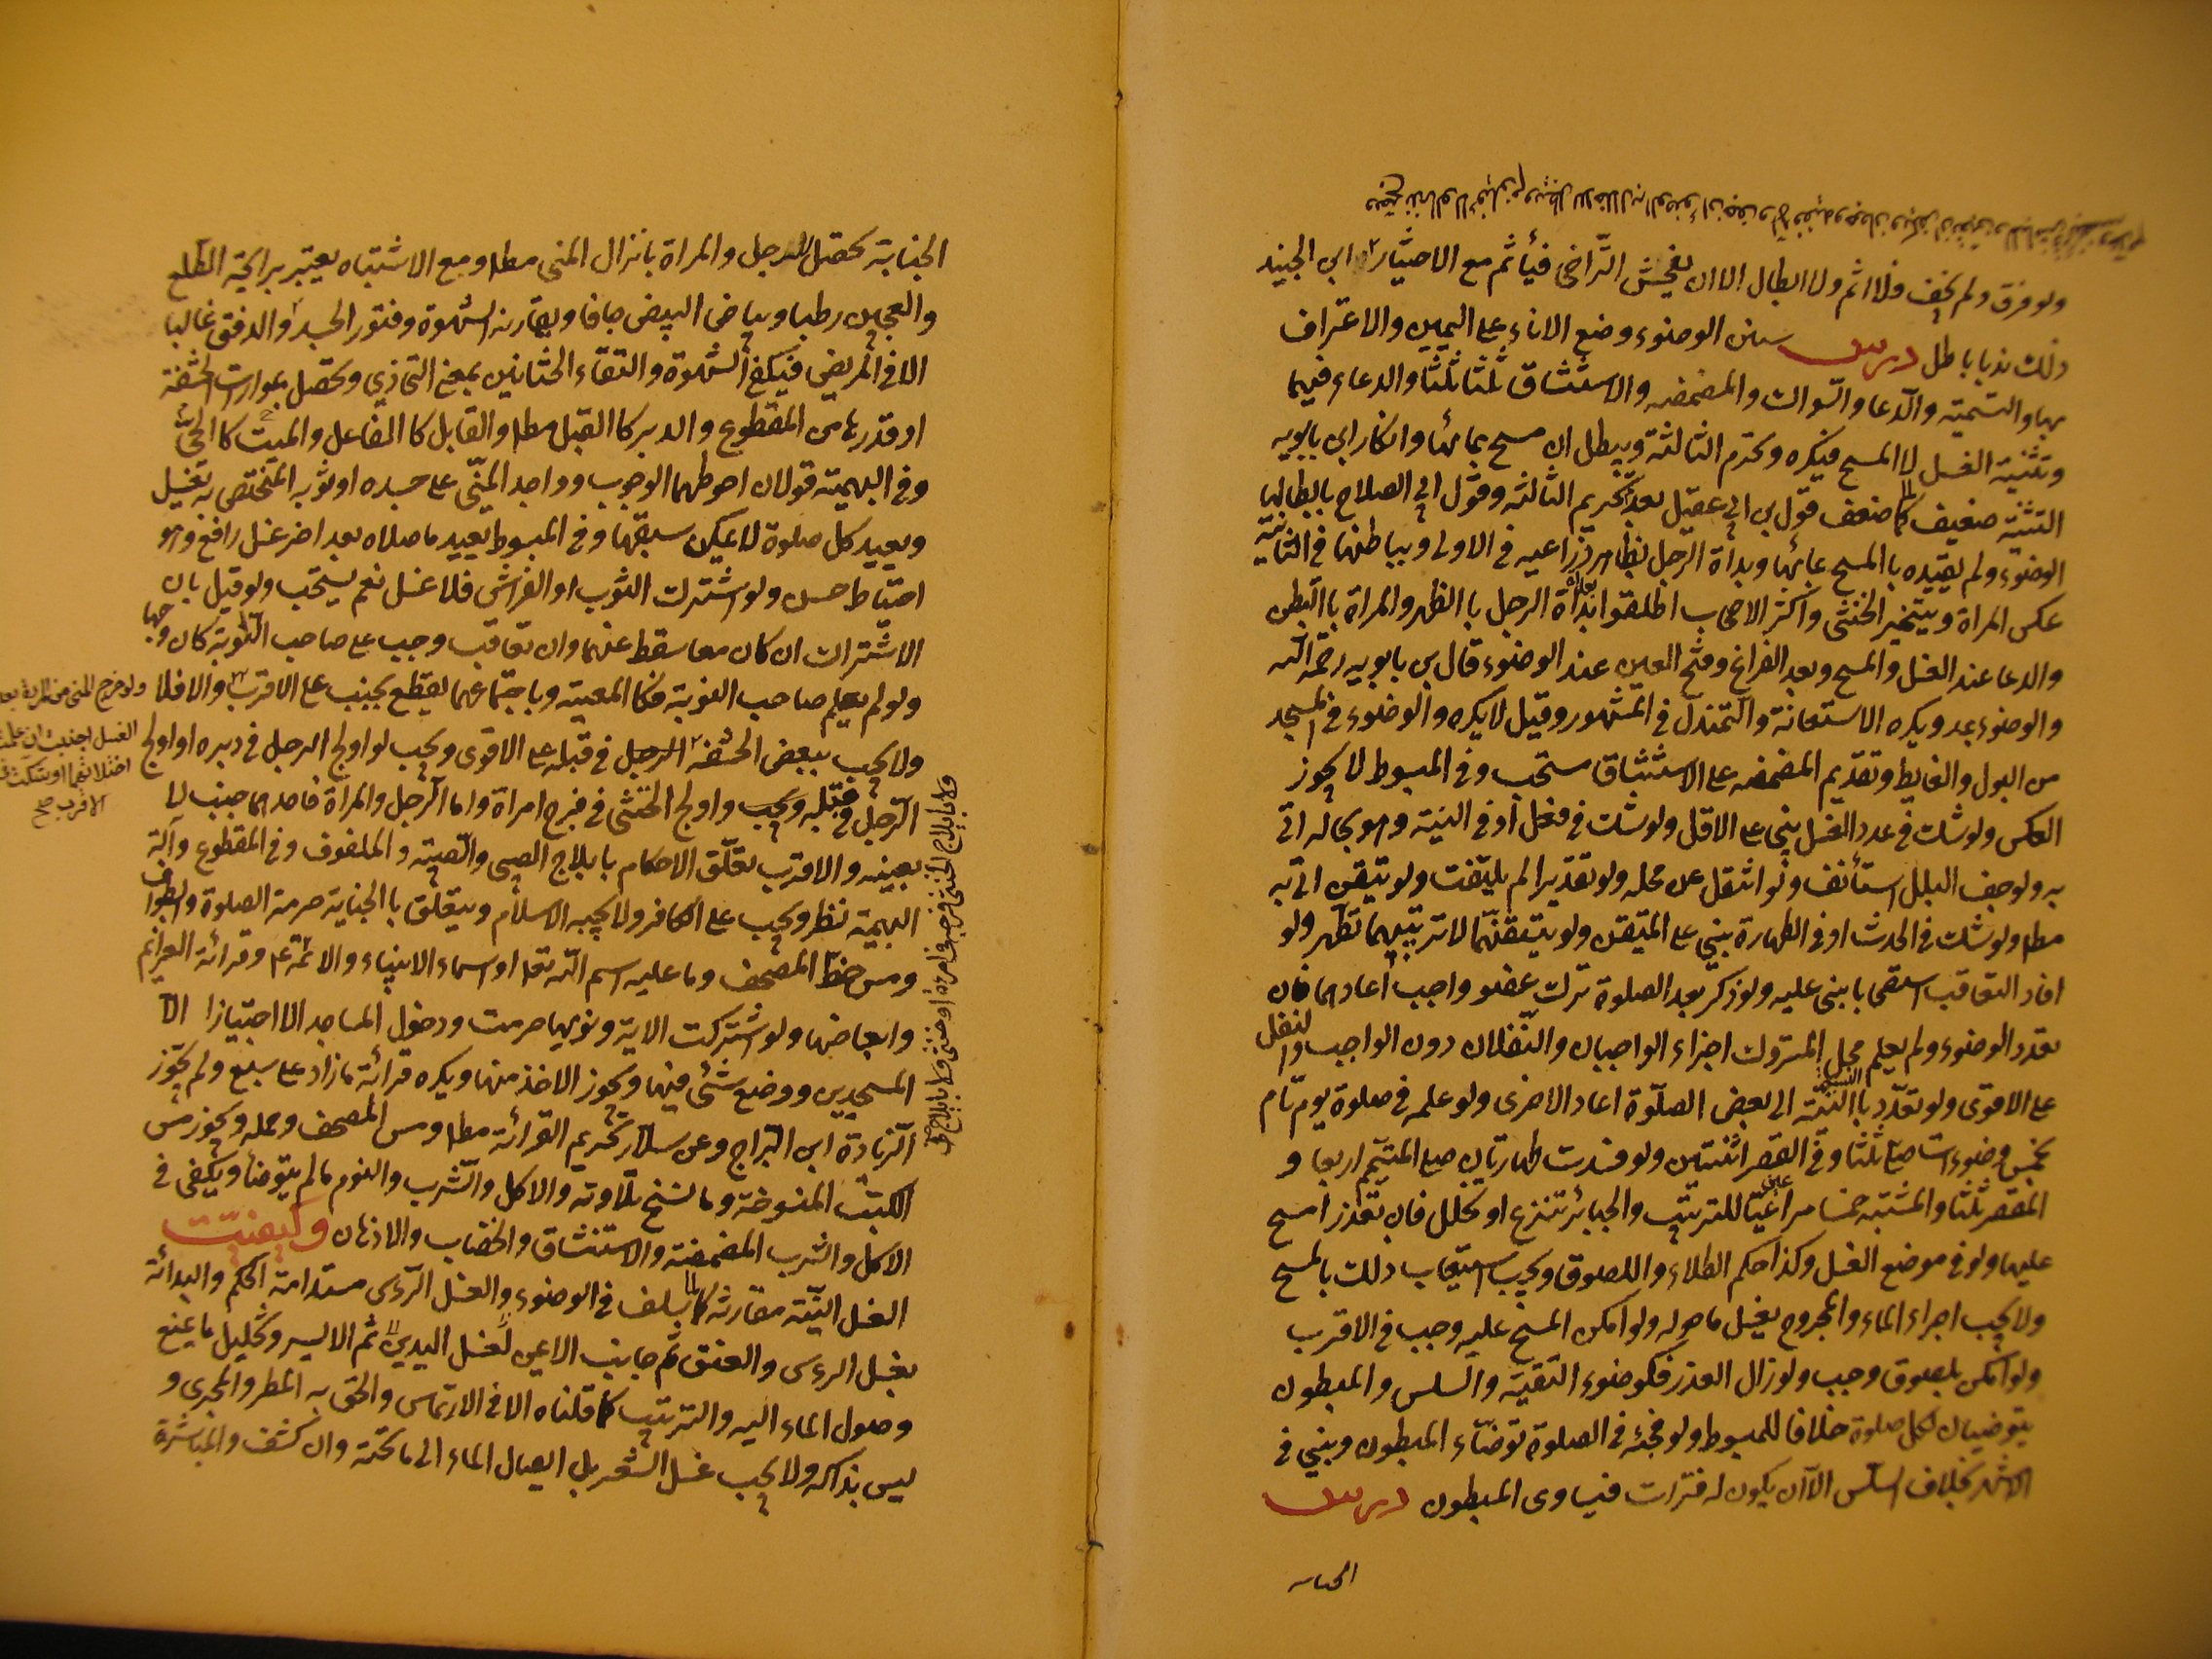 ولو فرق ولم يجف فلا اثم ولا ابطال الا ان يفحش التراخي فيأثم مع الاختيار ابن الجنيد
ذلك ندبا باطل درس سنن الوضوء وضع الاناء على اليمين والاغتراف
بها والتسمية والدعا والسواك والمضمضه والاستنشاق ثلثا ثلثا والدعاء فيهما
وتثنية الغسل لا المسح فيكره وتحرم الثالثة ويبطل ان مسح بمائها وانكار ابن بابويه
التثنية ضعيف كما ضعف قول بن ابي عقيل بعدم تحريم الثالثة وقول ابي الصلاح بابطالها
الوضوء ولم يقيده با المسح بمائها وبدأة الرجل بظاهر ذراعيه في الاولى وبباطنها في الثانية
عكس المراة ويتخير الخنثى واكثر الاصحاب اطلقوا بدأة الرجل با الظهر والمراة با البطن
والدعا عند الغسل والمسح وبعد الفراغ وفتح العين عند الوضوء قال بن بابويه رحمه الله
والوضوء بمد ويكره الاستعانة والتمندل في المشهور وقيل لا يكره والوضوء في المسجد
من البول والغايط وتقديم المضمضه على الاستنشاق مستحب وفي المبسوط لا يجوز
العكس ولو شك في عدد الغسل بنى على الاقل ولو شك في فعل او في النية وهو بحاله اتى
به ولو جف البلل استأنف ولو انتقل عن محله ولو تقديرا لم يلتفت ولو تيقن اتى به
مطلـ ولو شك في الحدث او في الطهارة بنى على المتيقن ولو تيقنهما لا ترتيبهما تطهر ولو
افاد التعاقب استصحابا بنى عليه ولو ذكر بعد الصلوة ترك عضو واجب اعادهما فان
تعدد الوضوء ولم يعلم محل المتروك اجزاء الواجبان والنفلان دون الواجب والنفل
على الاقوى ولو تعدد با النسبة الى بعض الصلوة اعاد الاخرى ولو علمه في صلوة يوم تام
بخمس وضوءات صلى ثلثا وفي القصر اثنتين ولو فسدت طهارتان صلى المتمم اربعا و
المقصر ثلثا والمشتبه خمسا مراعيا للترتيب والجبائر تنزع او تخلل فان تعذر امسح
عليها ولو في موضع الغسل وكذا حكم الطلاء واللصوق ويجب استيعاب ذلك بالمسح
ولا يجب اجراء الماء والمجروح يغسل ما حوله ولو امكن المسح عليه وجب في الاقرب
ولو امكن بلصوق وجب ولو زال العذر فكوضوء التقية والسلس والمبطون
يتوضيان لكل صلوة خلافا للمبسوط ولو فجئه في الصلوة توضاء المبطون وبنى في
الاشهر بخلاف السلس الا ان يكون له فترات فيساوى المبطون درس
الجنابه
الجنابة تحصل للرجل والمراة بانزال المنى مطلـ ومع الاشتباه يعتبر برايحة الطلع
والعجين رطبا وبياض البيض جافا ويقارنه الشهوة وفتور الجسد والدفق غالبا
الا في المريض فيكفي الشهوة والتقاء الختانين بمعنى التحاذي وتحصل بموارات الحشفة
او قدرها من المقطوع والدبر كا القبل مطلـ والقابل كا الفاعل والميت كا الحي
وفي البهيمة قولان احوطهما الوجوب وواجد المني على جسده او ثوبه المختص به تغسل
ويعيد كل صلوة لا يمكن سبقها وفي المبسوط يعيد ما صلاه بعد اخر غسل رافع وهو
احتياط حسن ولو اشترك الثوب او الفراش فلا غسل نعم يستحب ولو قيل بان
الاشتراك ان كان معا سقط عنهما وان تعاقب وجب على صاحب النوبة كان وجها
ولو لم يعلم صاحب النوبة فكا المعية وباجتماعهما يقطع بجنب على الاقرب والا فلا
ولو خرج المني من المراة بعد
الغسل اجنبت ان علمت
اختلاطها او شكت في
الاقرب صح
ولا يجب ببعض الحشفه الرجل في قبله على الاقوى ويجب لو اولج الرجل في دبره او اولج
الرجل في قبله ويجب واولج الخنثى في فرج امراة واما الرجل والمراة فاحدهما جنب لا
وكا بايلاج الخنثى في فرج امراة او خنثى وكا بايلاج
بعينه والاقرب تعلق الاحكام بايلاج الصبي والصبية والملفوف وفي المقطوع وآلة
البهيمة نظر ويجب على الكافر ولا يجبه الاسلام ويتعلق با الجنابة حرمة الصلوة والطواف
ومس خط المصحف وما عليه اسم الله تعا او اسماء الانبياء والائمة ع وقرائة العزائم
وابعاضها ولو اشتركت الاية ونويها حرمت ودخول المساجد الا اجتيازا الا
المسجدين ووضع شئ فيها ويجوز الاخذ منها ويكره قرائة ما زاد على سبع ولم يجوز
الزيادة ابن البراج وعن سلار تحريم القرائة مطلـ ومس المصحف وحمله ويجوز مس
الكتب المنسوخة وما نسخ تلاوته والاكل والشرب والنوم ما لم يتوضأ ويكفى في
الاكل والشرب المضمضة والاستنشاق والخضاب والادهان وكيفيته
الغسل النية مقارنة كما سلف في الوضوء والغسل الرءس مستدامة الحكم والبدائة
بغسل الرءس والعنق ثم جانب الايمن ثم الايسر وتخليل ما يمنع
وصول الماء اليه والترتيب كما قلناه الا في الارتماس والحق به المطر والمجرى و
ليس بذاك ولا يجب غسل الشعر بل ايصال الماء الى ما تحته وان كثف والمباشرة